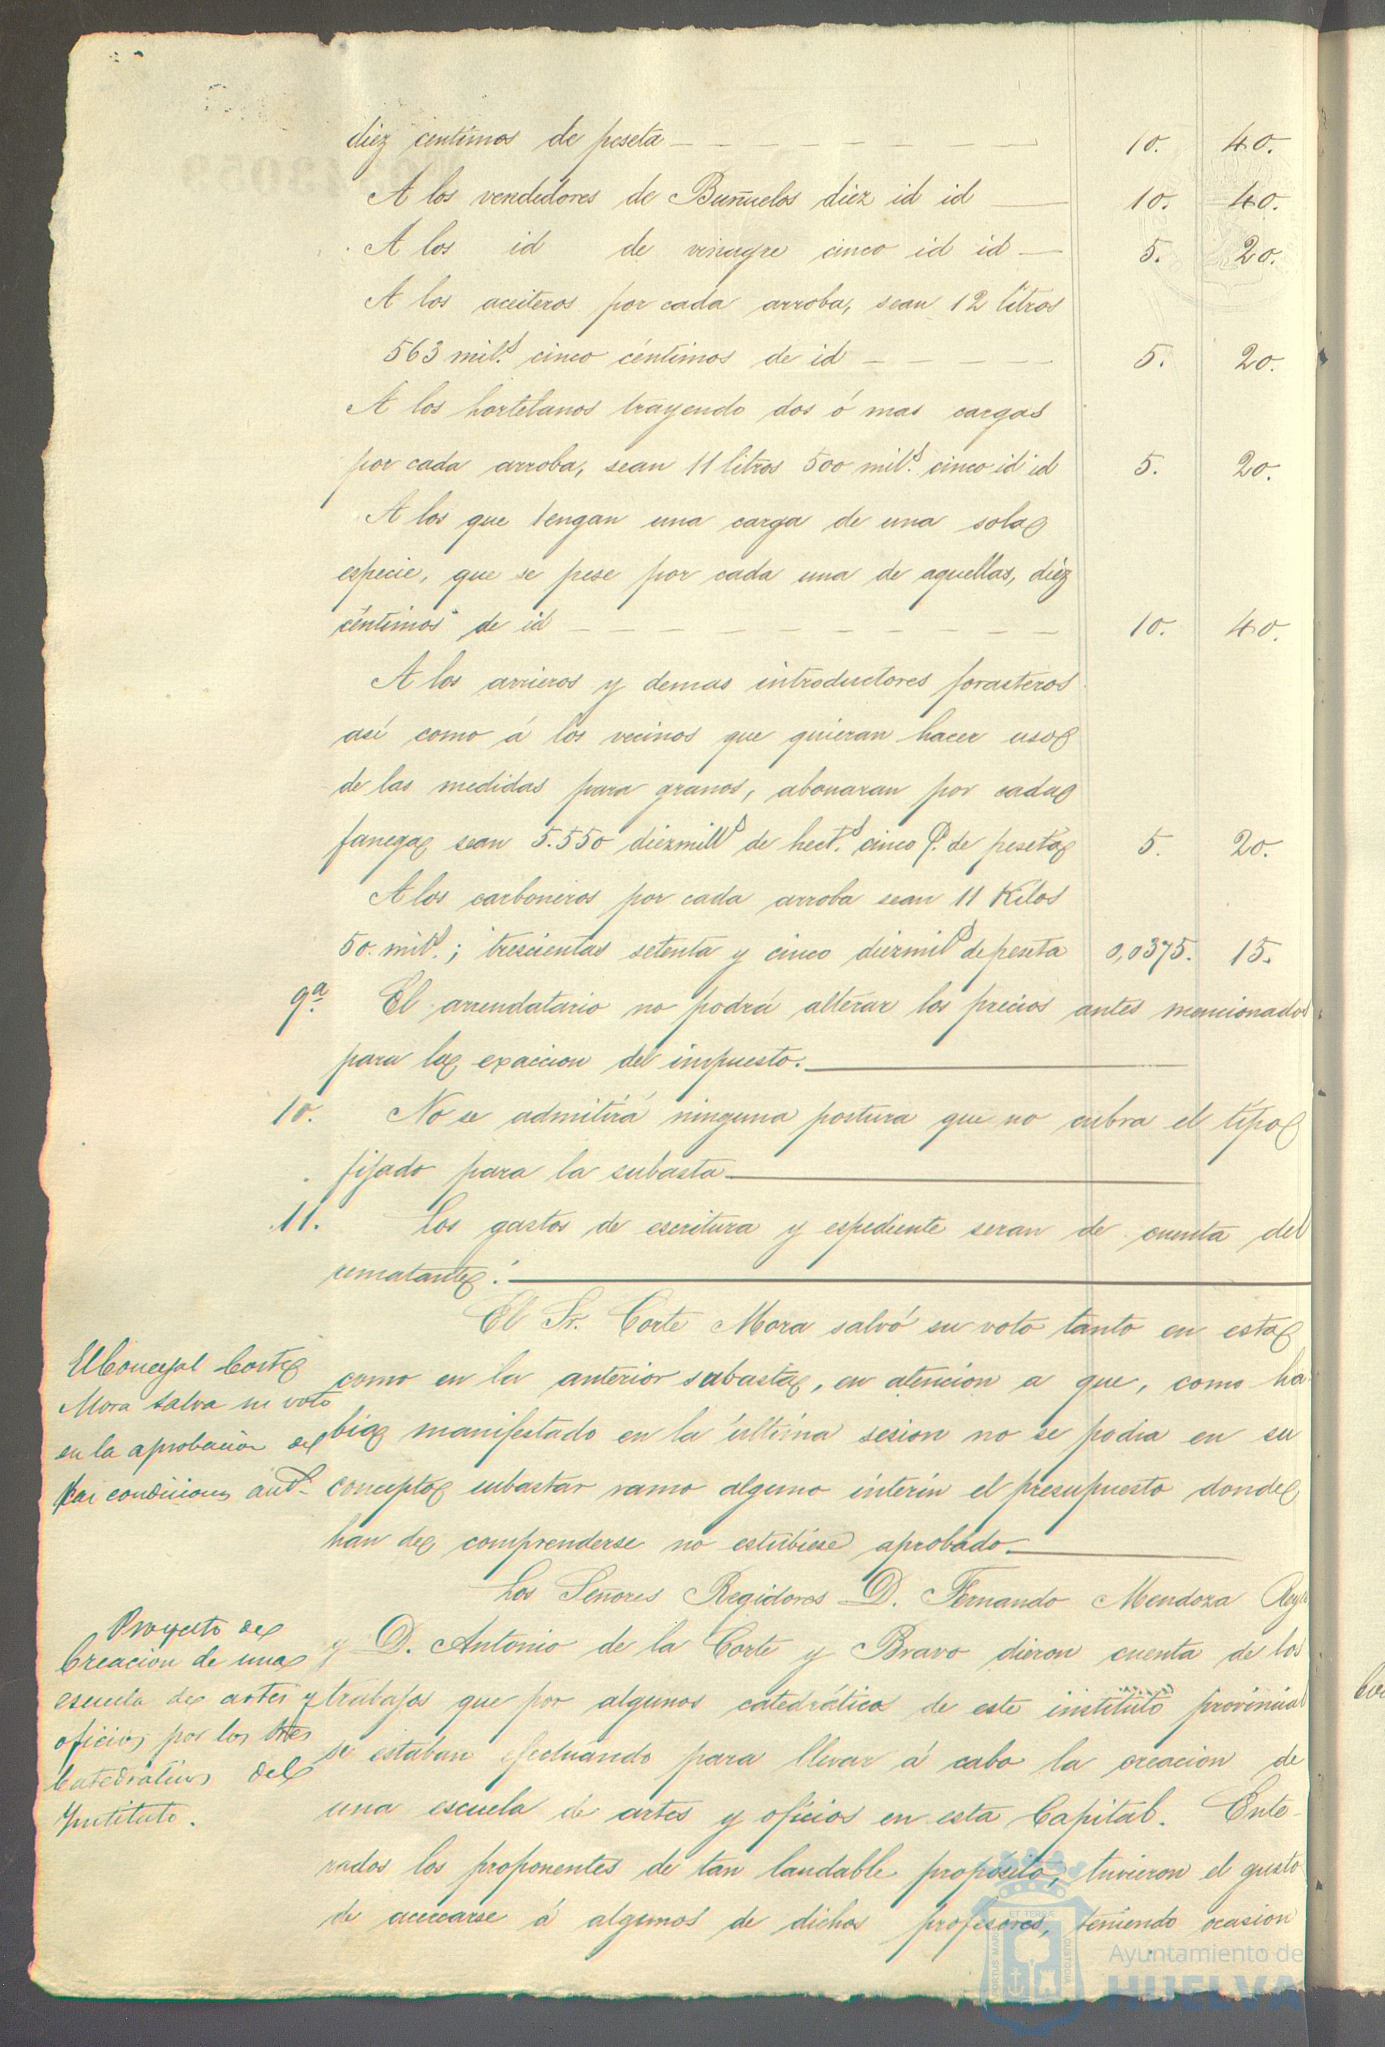 diez centimos de peseta - - - - - - - - 10. 40.
A los vendedores de Buñuelos diez id id — 10. 40.
A los id de vinagre cinco id id — 5. 20.
A los aceiteros por cada arroba, sean 12 litros
563 mil.s cinco céntimos de id - - - - 5. 20.
A los hortelanos trayendo dos ó mas cargas
por cada arroba, sean 11 litros 500 mil.s cinco id id 5. 20.
A los que tengan una carga de una sola
especie, que se pese por cada una de aquellas, diez
céntimos de id - - - - - - - - - - 10. 40.
A los arrieros y demas introductores forasteros
así como á los vecinos que quieran hacer uso
de las medidas para granos, abonaran por cada
fanega sean 5.550 diezmills de hect.s cinco C. de peseta 5. 20.
A los carboneros por cada arroba sean 11 Kilos
50. mils.; trescientas setenta y cinco diezmils de peseta 0,0375. 15.
9.a El arrendatario no podrá alterar los precios antes mencionados
para la exaccion del impuesto.
10. No se admitirá ninguna postura que no cubra el tipo
fijado para la subasta
11. Los gastos de escritura y espediente seran de cuenta del
rematante.
El Concejal Corte
Mora salva su voto
en la aprobacion de
las condiciones antr.
El Sr. Corte Mora salvó su voto tanto en esta
como en la anterior subasta, en atencion a que, como ha
bia manifestado en la última sesion no se podia en su
concepto subastar ramo alguno ínterin el presupuesto donde
han de comprenderse no estubiese aprobado.
Proyecto de
Creacion de una
escuela de artes y
oficios por los tres
Catedraticos del
Ynstituto.
Los Señores Regidores D. Fernando Mendoza
y D. Antonio de la Corte y Bravo dieron cuenta de los
trabajos que por algunos catedráticos de este instituto provincial
se estaban efectuando para llevar á cabo la creacion de
una escuela de artes y oficios en esta Capital. Ente-
rados los proponentes de tan laudable proposito, tuvieron el gusto
de acercarse á algunos de dichos profesores, teniendo ocasion
Ayuntamiento de
HUELVA